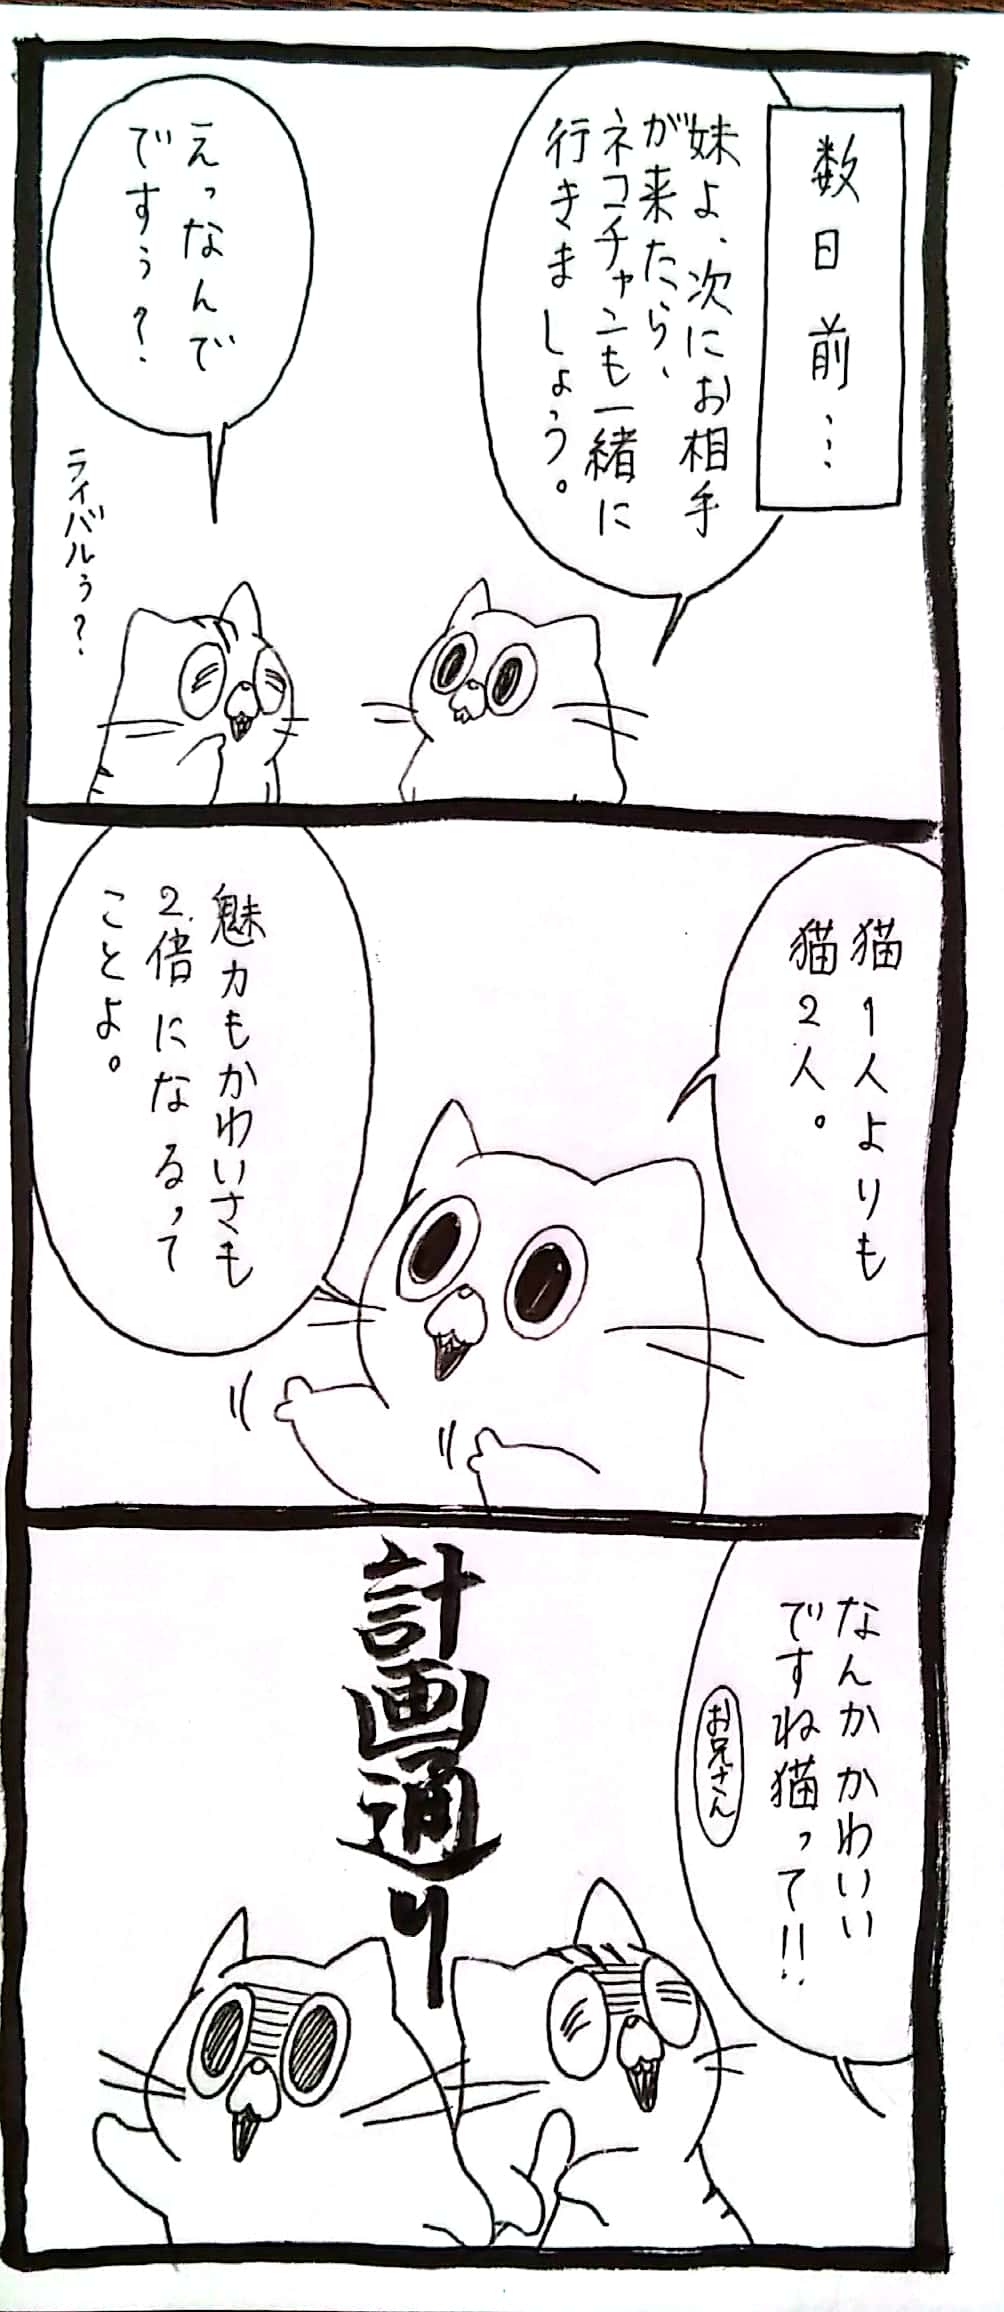 数日前…
妹よ、次にお相手
が来たら、
ネコチャンも一緒に
行きましょう。
えっなんで
ですぅ?
ライバルぅ?
猫1人よりも
猫2人。
魅力もかわいさも
2倍になるって
ことよ。
なんかかわいい
ですね猫って!!
お兄さん
計画通り